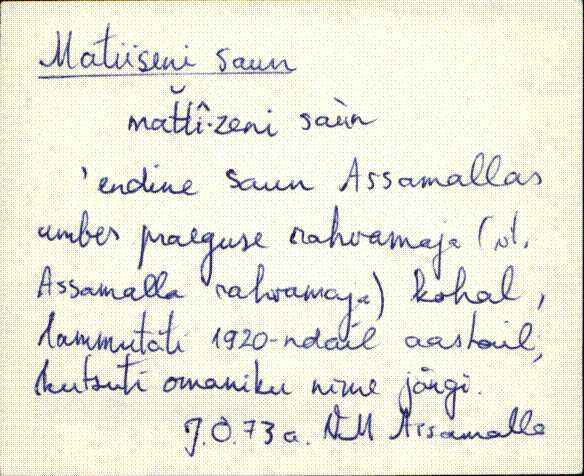 Matiiseni saun
mattî·zeni saùn
'endine saun Assamallas
umbes praeguse rahvamaja (vt.
Assamalla rahvamaja) kohal,
lammutati 1920-ndail aastail;
kutsuti omaniku nime järgi.
J.O. 73 a. VM Assamalla